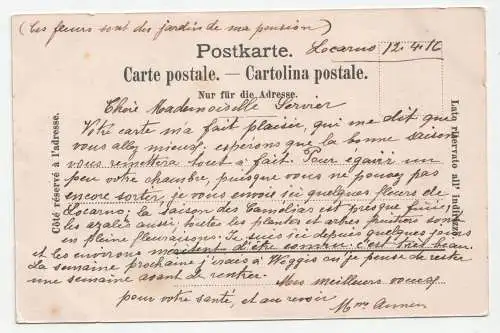 (Les fleurs sont des jardins de ma pension)
Postkarte. Locarno 12.4.10
Carte postale. — Cartolina postale.
Nur für die Adresse.
Côté réservé à l'adresse.
Lato riservato all' indirizzo
Chère Mademoiselle Servier
Votre carte m'a fait plaisir, qui me dit que
vous allez mieux, espérons que la bonne saison
vous remettera tout à fait. Pour égaier un
peu votre chambre, puisque vous ne pouvez pas
encore sortir, je vous envoie ici quelques fleurs de
Locarno; la saison de Camélias est presque finie,
les azalés aussi, toutes les plantes et arbres fruitiers sont
en pleine fleuraisons. Je suis ici depuis quelques jours
et les environs méritent d'être connu. C'est très beau.
La semaine prochaine j'irais à Weggis ou je pense de rester
une semaine avant de rentrer.
Mes meilleurs voeux
pour votre santé, et au revoir
Mme